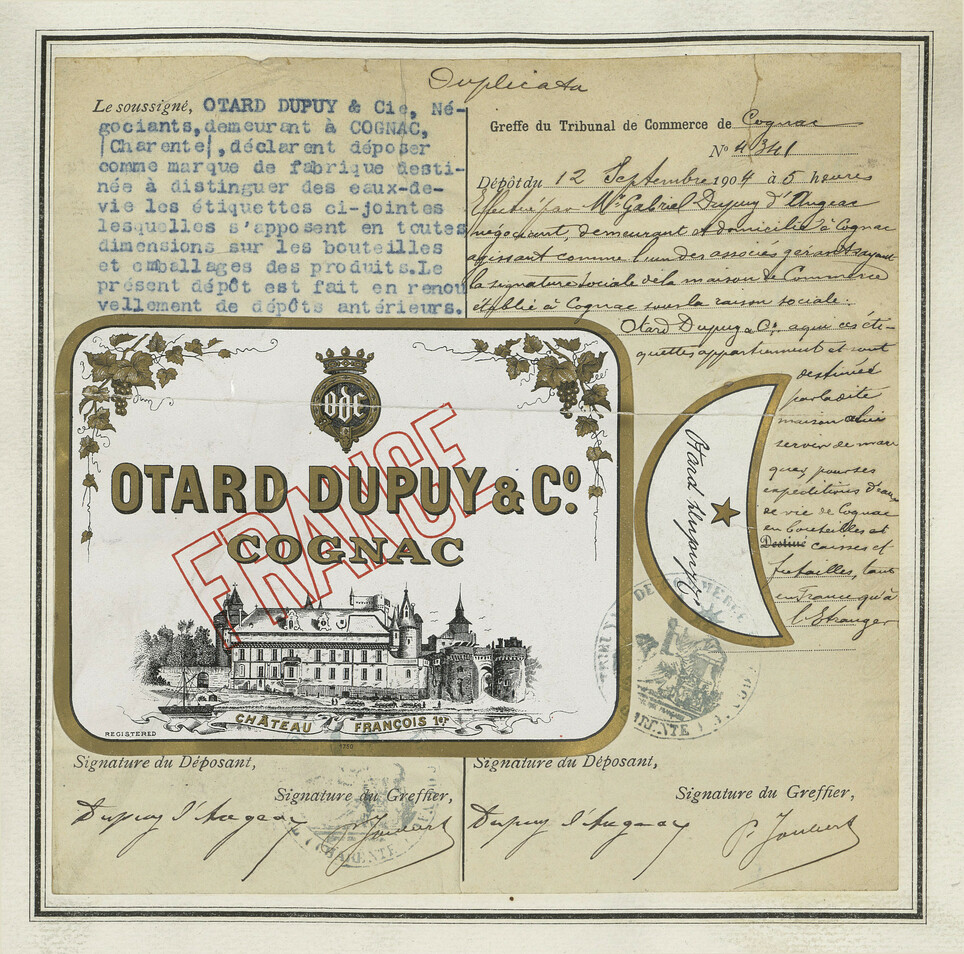 Duplicata
Le soussigné, OTARD DUPUY & Cie, Né-
gociants, demeurant à COGNAC,
(Charente), déclarent déposer
comme marque de fabrique desti-
née à distinguer des eaux-de-
vie les étiquettes ci-jointes
lesquelles s'apposent en toutes
dimensions sur les bouteilles
et emballages des produits. Le
présent dépôt est fait en renou
vellement de dépôts antérieurs.
Greffe du Tribunal de Commerce de Cognac
No 4341
Dépôt du 12 Septembre 1904 à 5 heures
Effectué par Mr Gabriel Dupuy d'Angeac
négociant, demeurant et domicilié à Cognac
agissant comme l'un des associés gérants ayant
la signature sociale de la maison de Commerce
établie à Cognac sous la raison sociale:
Otard Dupuy & Co, a qui ces éti-
quettes appartiennent et sont
destinées
par ladite
maison à lui
servir de mar
ques, pour ses
expéditions d'eau
de vie de Cognac
en bouteilles et
Destiné caisses et
futailles, tant
en France qu'à
l'Etranger
ODC
OTARD DUPUY & Co.
COGNAC
FRANCE
CHÂTEAU FRANÇOIS 1er
REGISTERED
1780
Otard Dupuy & Co
Signature du Déposant,
Signature du Greffier,
Dupuy d'Angeac
P. Joubert
Signature du Déposant,
Signature du Greffier,
Dupuy d'Angeac
P. Joubert